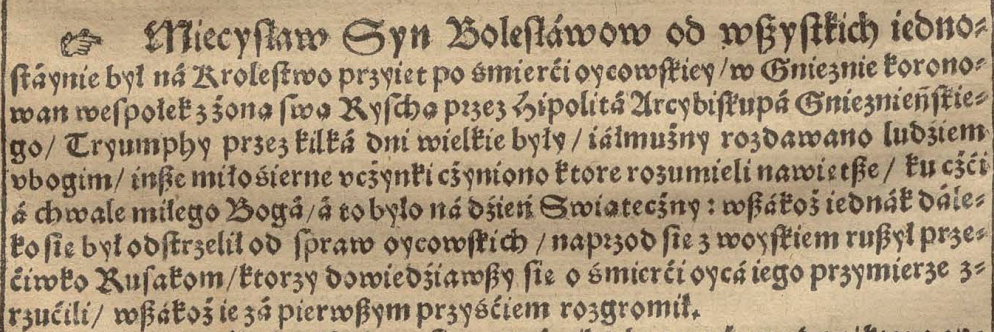 ☞ Miecysław Syn Bolesłáwow od wßystkich iedno⸗
stáynie był ná Krolestwo przyięt po śmierći oycowskiey / w Gnieznie korono⸗
wan wespołek z żoną swą Ryschą przez Hipolitá Arcybiskupá Gnieznieńskie⸗
go / Tryumphy przez kilká dni wielkie były / iáłmużny rozdawano ludziem
vbogim / inße miłośierne vcżynki cżyniono ktore rozumieli nawiętße / ku cżći
á chwale miłego Bogá / á to było ná dźień Swiątecżny : wßákoż iednák dále⸗
ko sie był odstrzelił od spraw oycowskich / naprzod sie z woyskiem rußył prze⸗
ćiwko Rusakom / ktorzy dowiedźiawßy sie o śmierći oycá iego przymierze z⸗
rzućili / wßákoż ie zá pierwßym przyśćiem rozgromił.